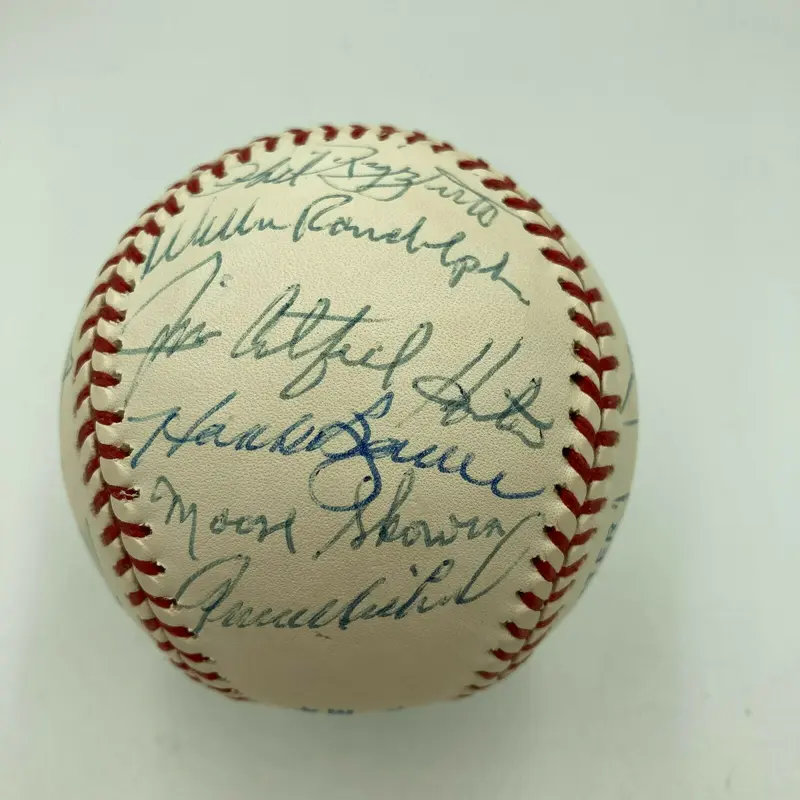 Phil Rizzuto
Willie Randolph
Jim Catfish Hunter
Hank Bauer
Moose Skowron